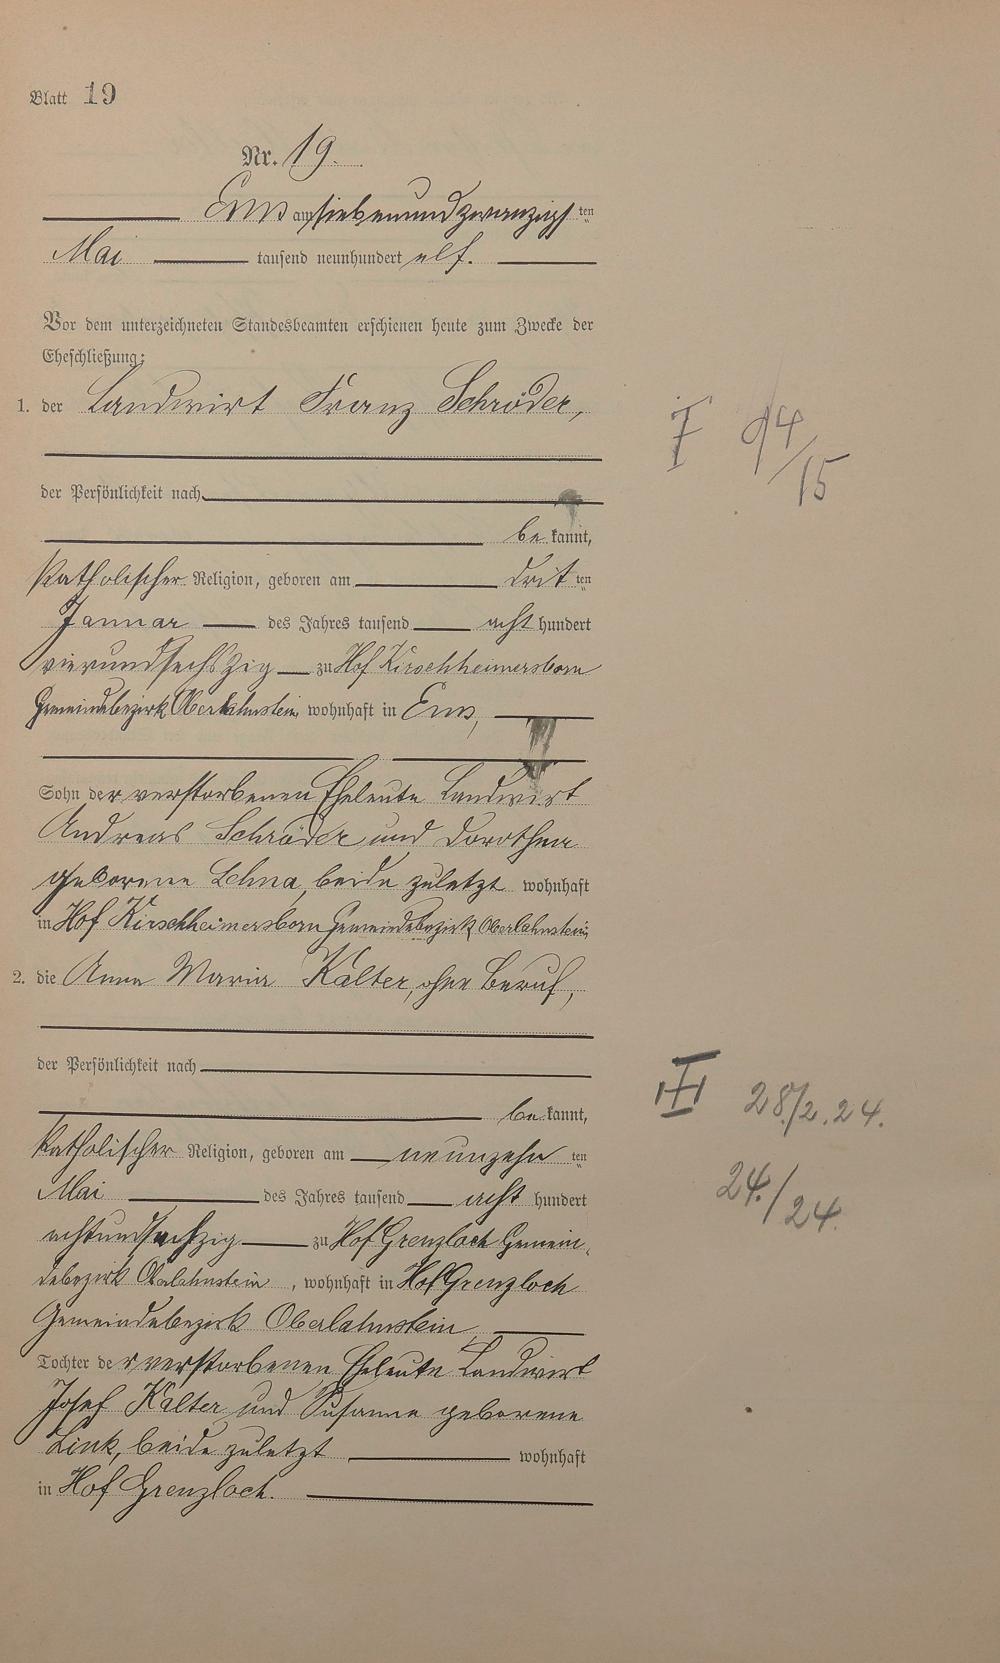 Blatt 19
Nr. 19.
Ems am siebenundzwanzigsten
Mai tausend neunhundert elf.
Vor dem unterzeichneten Standesbeamten erschienen heute zum Zwecke der
Eheschließung:
1. der Landwirt Franz Schröder,
der Persönlichkeit nach
be kannt,
katholischer Religion, geboren am dritten
Januar des Jahres tausend acht hundert
vierundsechszig zu Hof Kirschheimersborn
Gemeindebezirk Oberlahnstein, wohnhaft in Ems,
Sohn der verstorbenen Eheleute Landwirt
Andreas Schröder und Dorothea
geborene Lehna, beide zuletzt wohnhaft
in Hof Kirschheimersborn Gemeindebezirk Oberlahnstein,
2. die Anna Maria Kalter, ohne Beruf,
der Persönlichkeit nach
be kannt,
katholischer Religion, geboren am neunzehnten
Mai des Jahres tausend acht hundert
achtundsechzig zu Hof Grenzloch Gemein-
debezirk Oberlahnstein, wohnhaft in Hof Grenzloch
Gemeindebezirk Oberlahnstein
Tochter der verstorbenen Eheleute Landwirt
Josef Kalter und Susanna geborene
Link, beide zuletzt wohnhaft
in Hof Grenzloch.
III 28./2.24.
24./24.